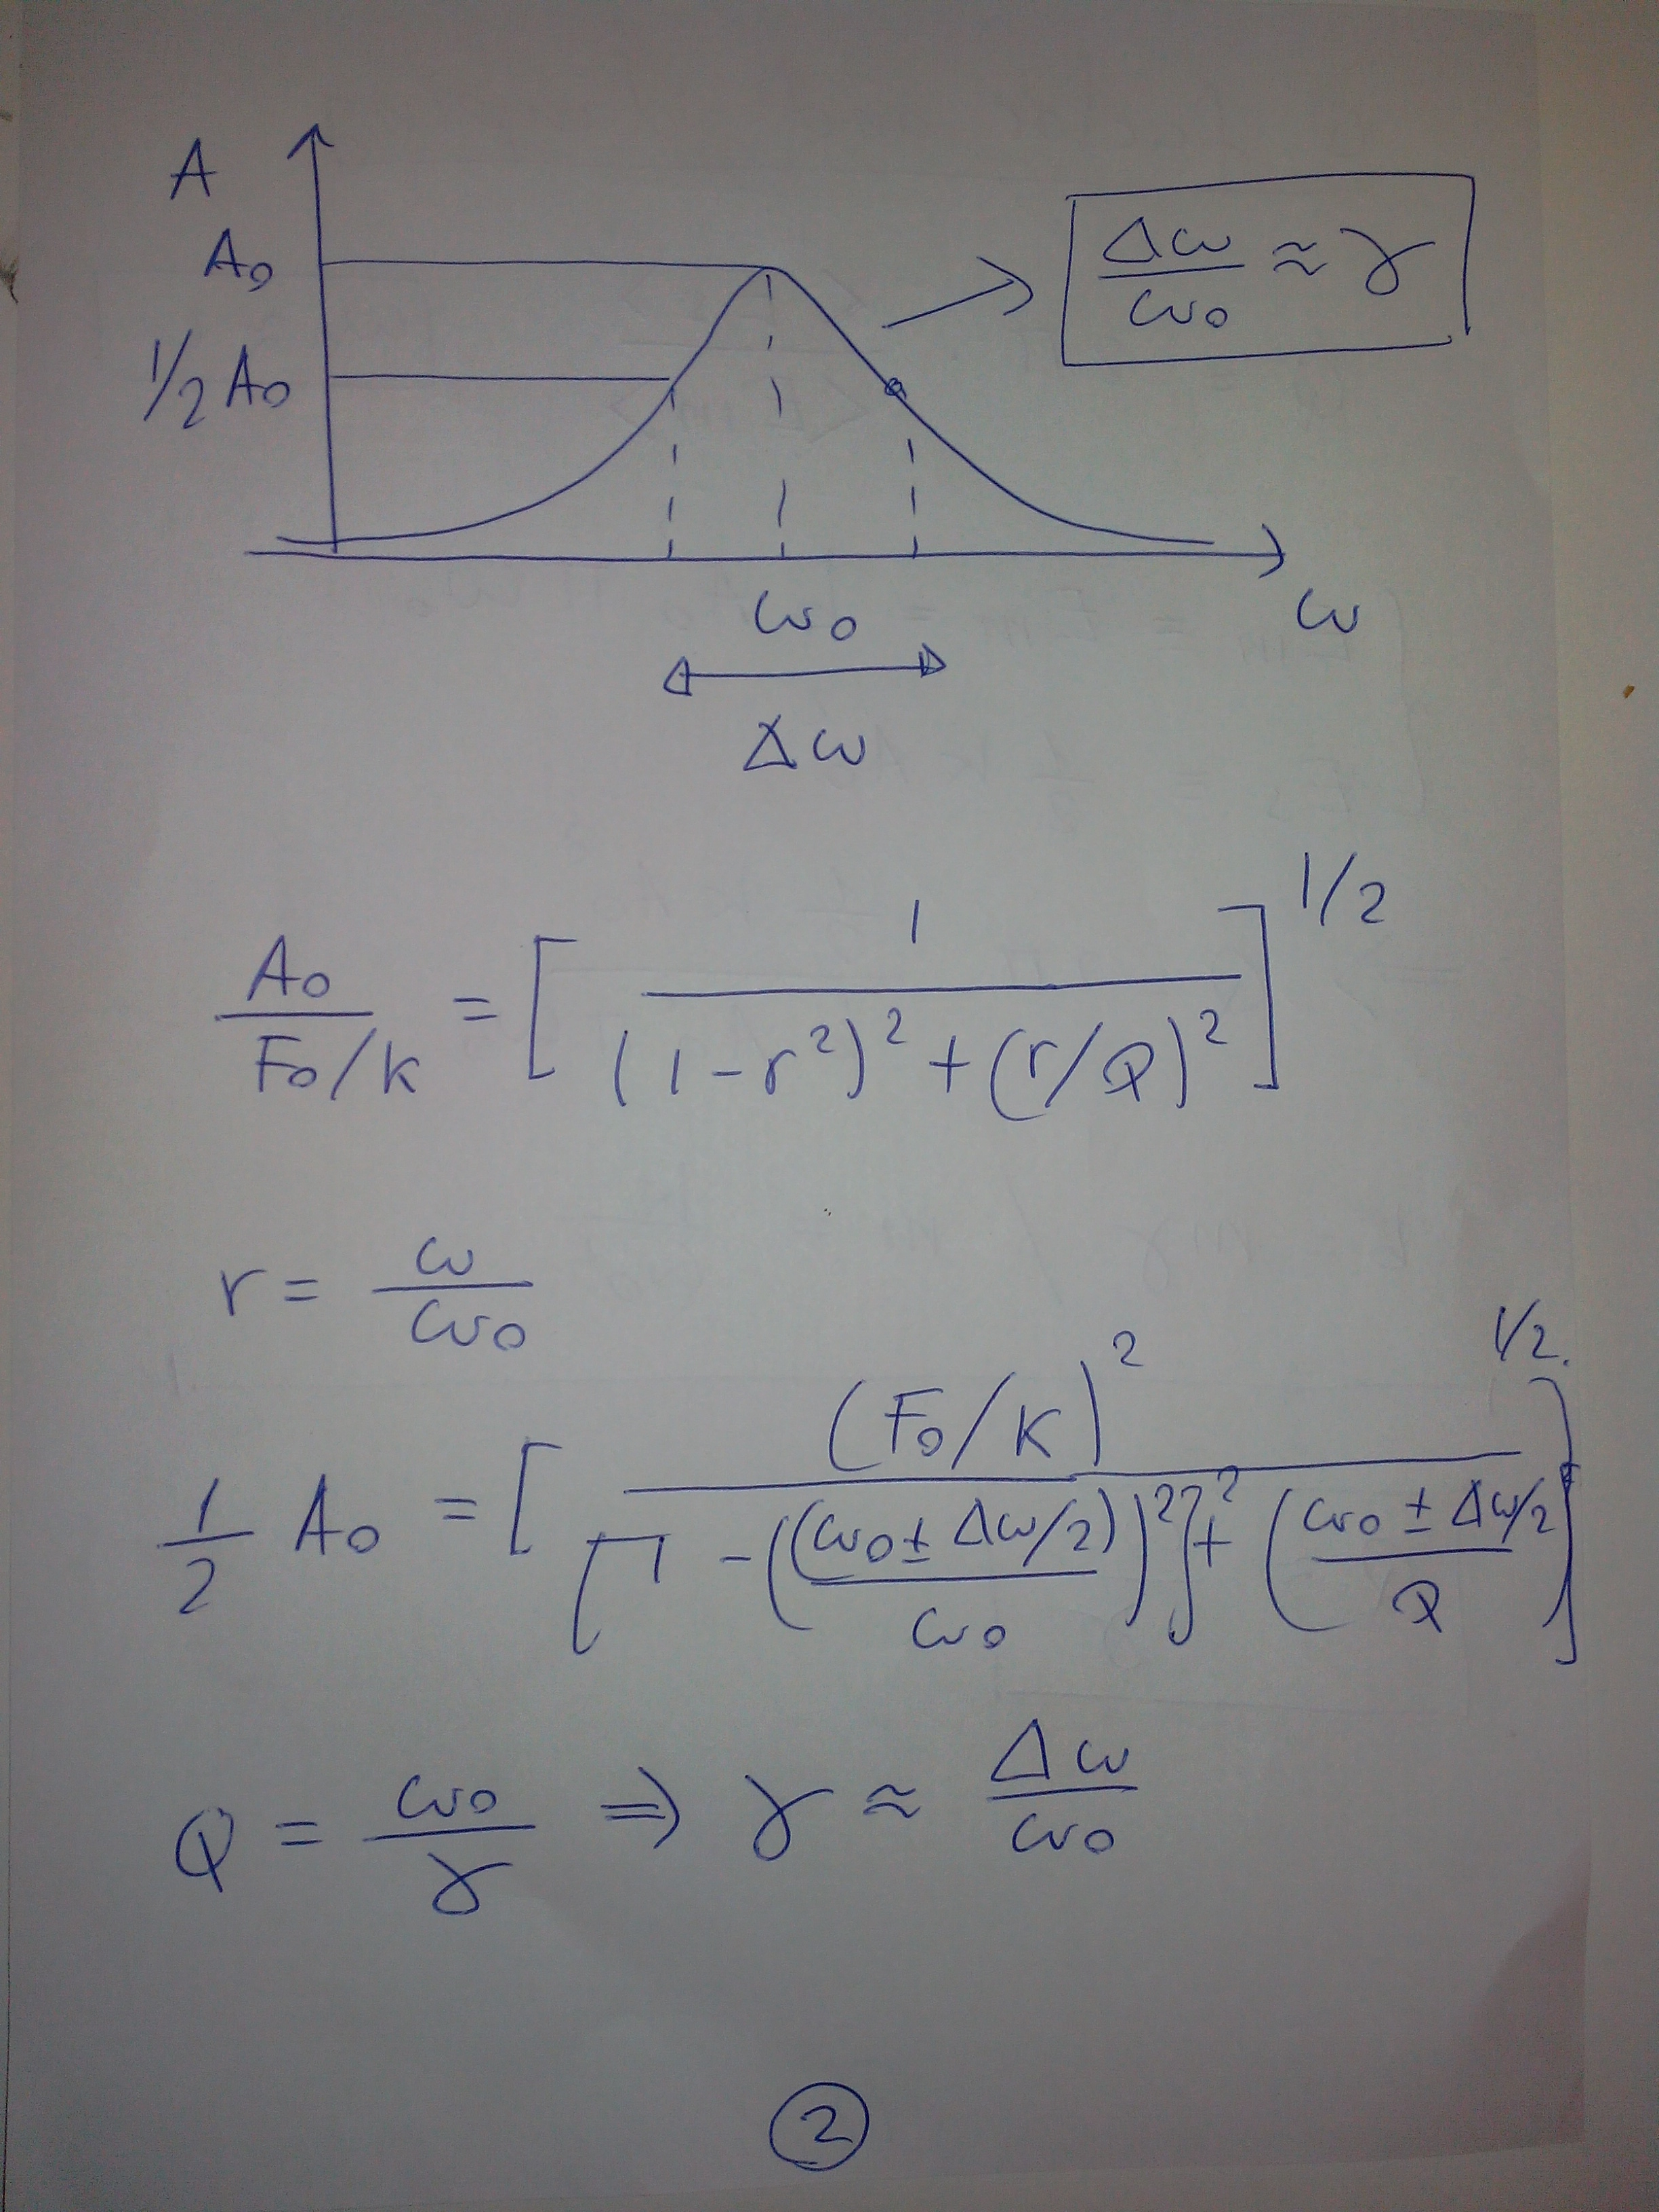 A
A₀
1/2 A₀
Δω/ω₀ ≈ γ
ω₀
ω
Δω
A₀/(F₀/k) = [ 1 / ((1-r²)² + (r/Q)²) ]^1/2
r = ω/ω₀
1/2 A₀ = [ (F₀/k)² / ([1 - ((ω₀ ± Δω/2)/ω₀)²]² + ((ω₀ ± Δω/2)/Q) ]^1/2
Q = ω₀/γ ⇒ γ ≈ Δω/ω₀
2